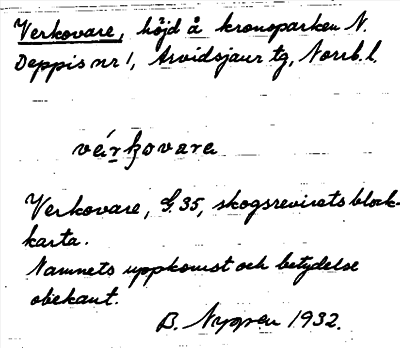 Verkovare, höjd å kronoparken N.
Deppis nr 1, Arvidsjaur tg, Norrb. l.
veírkovare
Verkovare, G. 35, skogsrevirets block-
karta.
Namnets uppkomst och betydelse
obekant.
B. Nygren 1932.